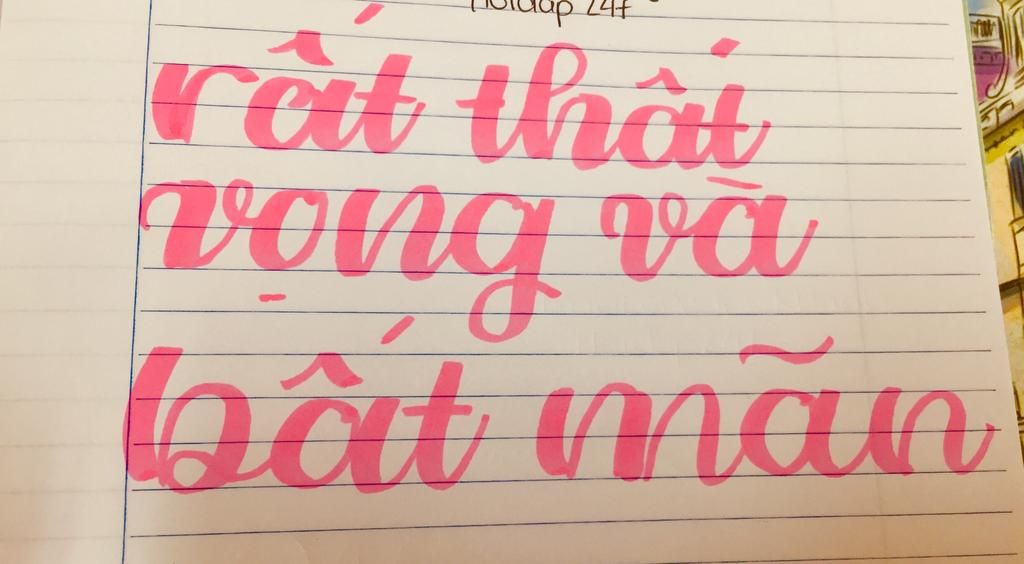 Hoidap 247
rất thất
vọng và
bất mãn